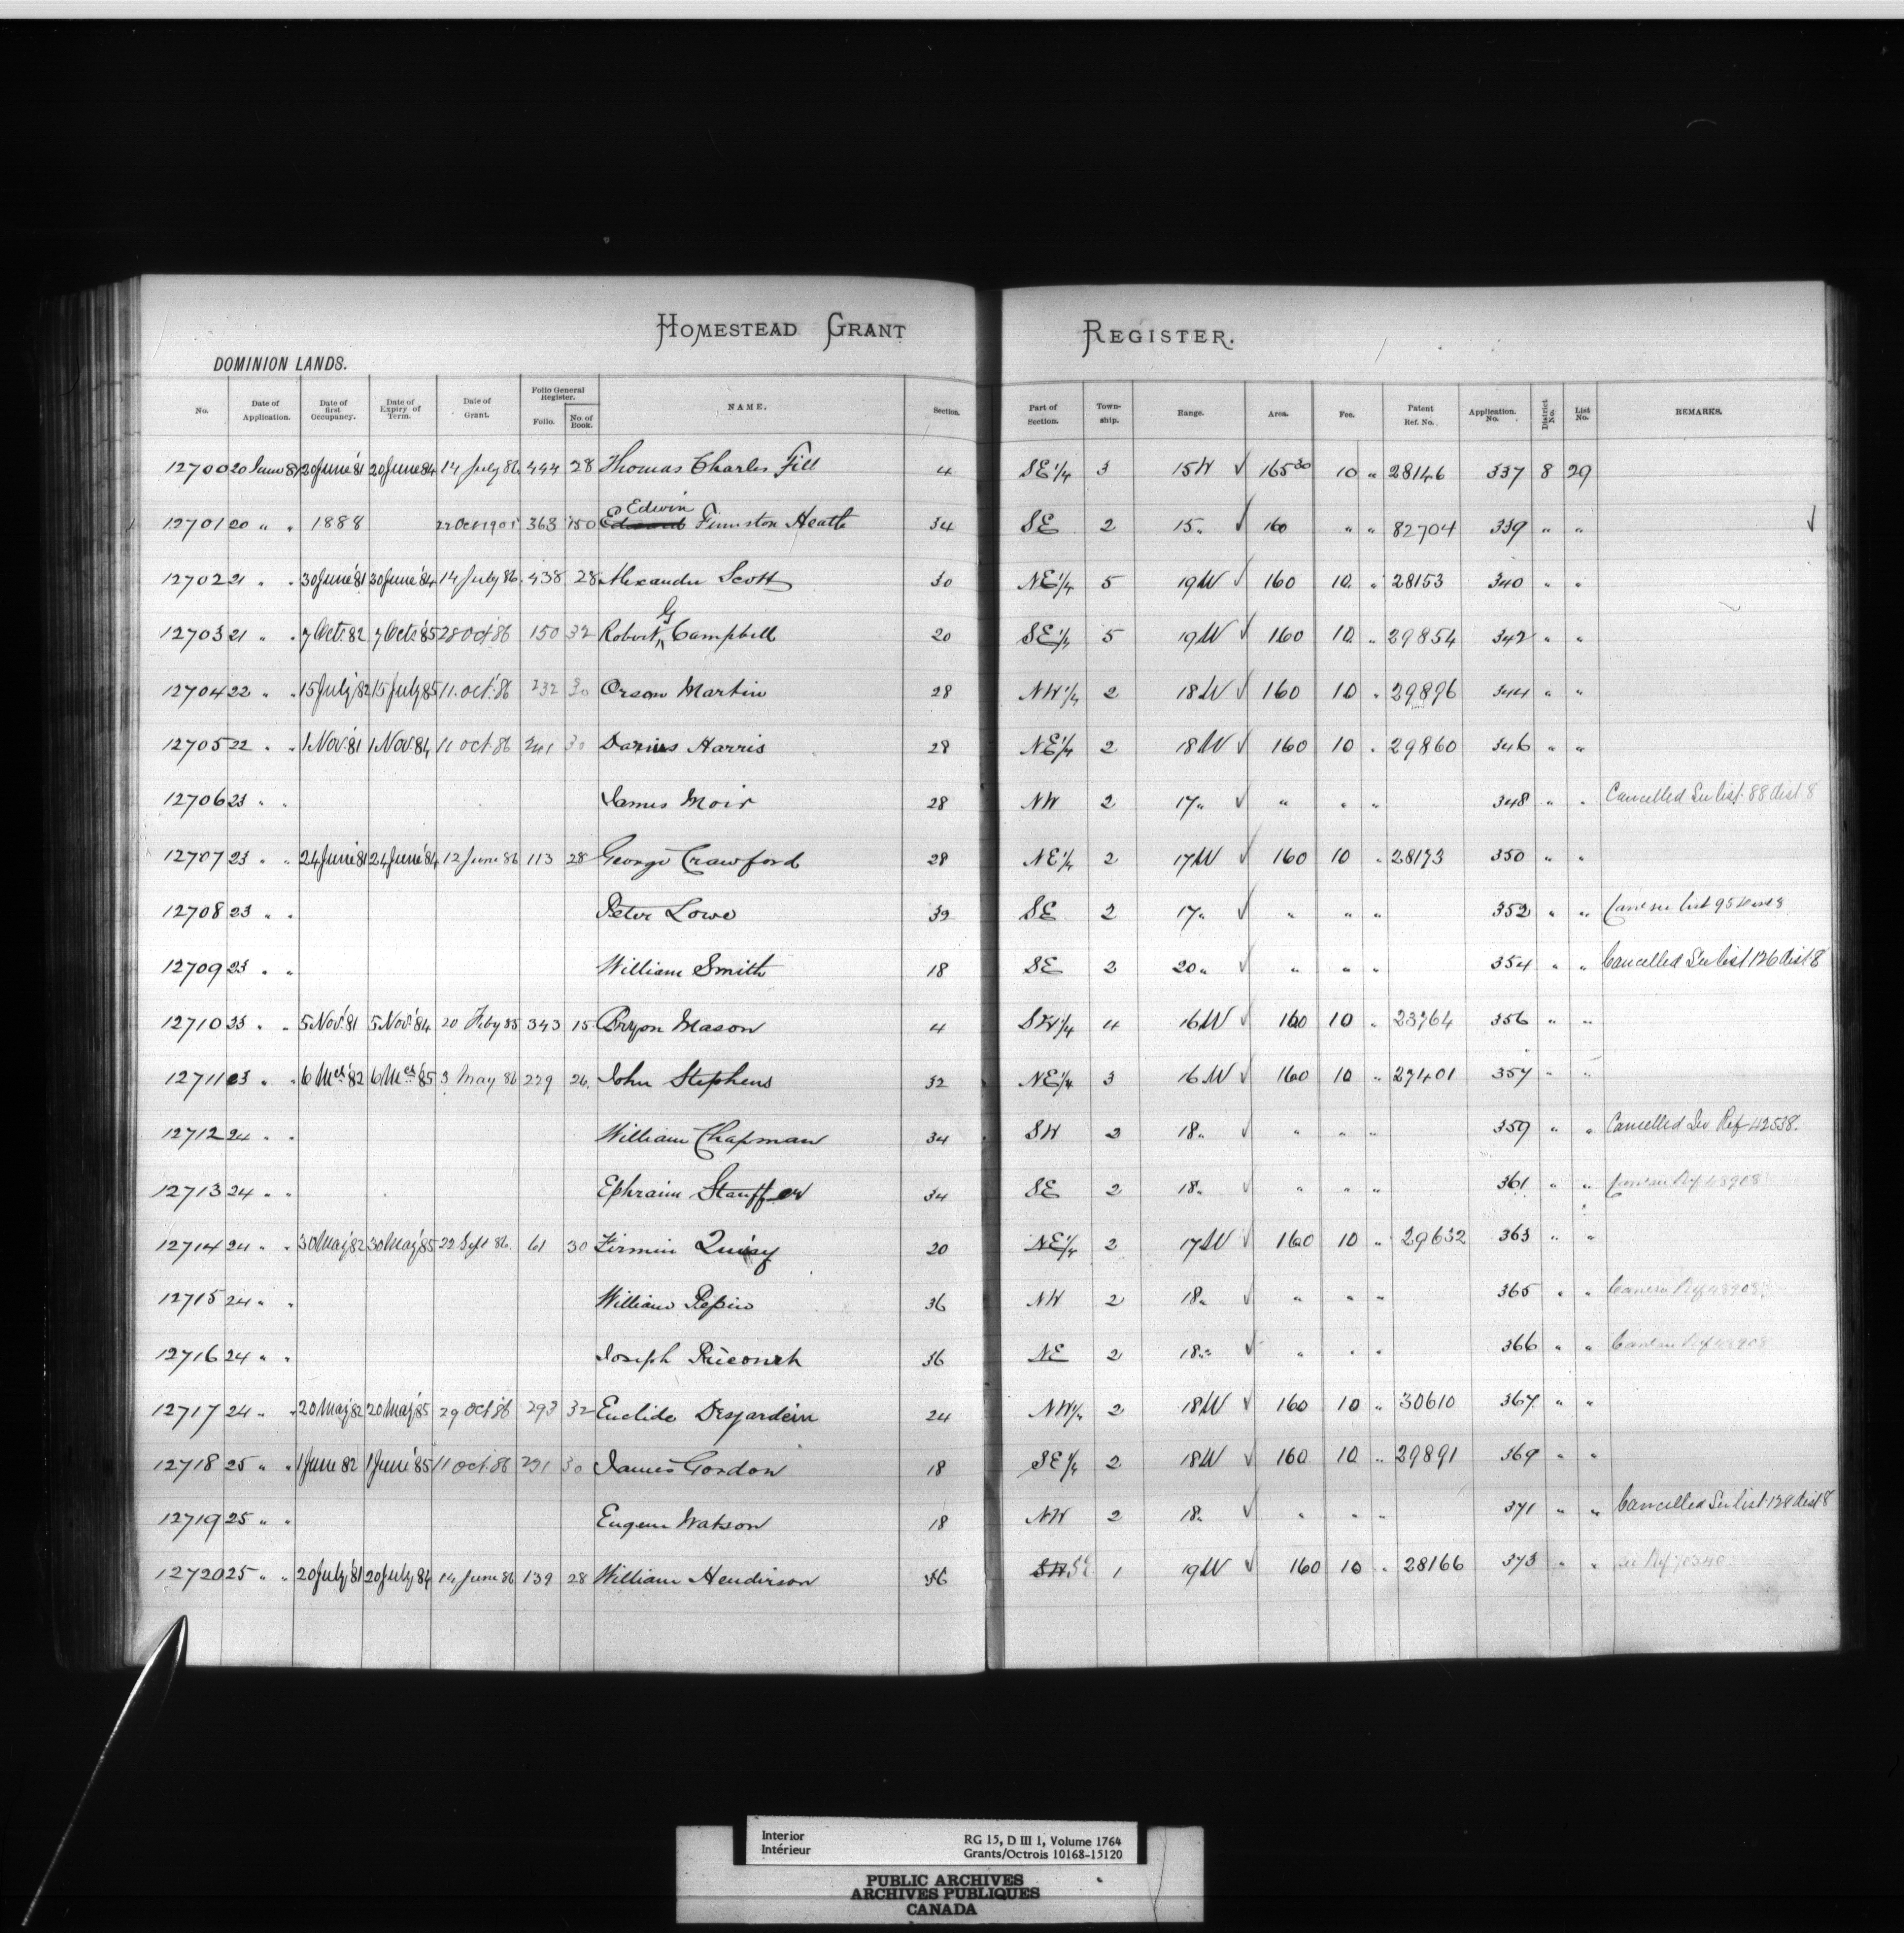 HOMESTEAD GRANT REGISTER.
DOMINION LANDS.
No. Date of Application. Date of first Occupancy. Date of Expiry of Term. Date of Grant. Folio General Register. Folio. No. of Book. NAME. Section. Part of Section. Township. Range. Area. Fee. Patent Ref. No. Application. No. District No. List No. REMARKS.
12700 20 June 81 20 June '81 20 June 84 14 July 86 444 28 Thomas Charles Fill 4 SE 1/4 3 15 W ✓ 165 30 10 " 28146 337 8 29
12701 20 " " 1888 22 Oct 1905 363 150 Edwin Funston Heath 34 SE 2 15 " ✓ 160 " " 82704 339 " " ✓
12702 21 " " 30 June '81 30 June '84 14 July 86 438 28 Alexander Scott 30 NE 1/4 5 19 W ✓ 160 10 " 28153 340 " "
12703 21 " " 7 Oct 82 7 Oct '85 28 Oct 86 150 32 Robert G Campbell 20 SE 1/4 5 19 W ✓ 160 10 " 29854 342 " "
12704 22 " " 15 July '82 15 July 85 11 Oct. '86 232 30 Orson Martin 28 NW 1/4 2 18 W ✓ 160 10 " 29896 344 " "
12705 22 " " 1 Nov. '81 1 Nov. 84 11 Oct. 86 241 30 Darius Harris 28 NE 1/4 2 18 W ✓ 160 10 " 29860 346 " "
12706 23 " " James Moir 28 NW 2 17 " ✓ " " " 348 " " Cancelled See list 88 dist 8
12707 23 " " 24 June '81 24 June '84 12 June 86 113 28 George Crawford 28 NE 1/4 2 17 W ✓ 160 10 " 28173 350 " "
12708 23 " " Peter Lowe 32 SE 2 17 " ✓ " " " 352 " " Canc see list 95 8
12709 23 " " William Smith 18 SE 2 20 " ✓ " " " 354 " " Cancelled See list 126 dist 8
12710 23 " " 5 Nov. '81 5 Nov. '84 20 Feby 85 343 15 Bryon Mason 4 SW 1/4 4 16 W ✓ 160 10 " 23764 356 " "
12711 23 " " 6 Mch '82 6 Mch '85 3 May 86 229 26 John Stephens 32 NE 1/4 3 16 W ✓ 160 10 " 27401 357 " "
12712 24 " " William Chapman 34 SW 2 18 " ✓ " " " 359 " " Cancelled See Ref 42538.
12713 24 " " Ephraim Stauffer 34 SE 2 18 " ✓ " " " 361 " " Ref 48908
12714 24 " " 30 May '82 30 May '85 22 Sept 86 61 30 Firmin Quisy 20 NE 1/4 2 17 W ✓ 160 10 " 29632 363 " "
12715 24 " " William Pepin 36 NW 2 18 " ✓ " " " 365 " " Ref 48908
12716 24 " " Joseph 36 NE 2 18 " ✓ " " " 366 " " Ref 48908
12717 24 " " 20 May '82 20 May '85 29 Oct 86 293 32 Euclide Desjardein 24 NW 1/4 2 18 W ✓ 160 10 " 30610 367 " "
12718 25 " " 1 June 82 1 June '85 11 Oct. 86 231 30 James Gordon 18 SE 1/4 2 18 W ✓ 160 10 " 29891 369 " "
12719 25 " " Eugene Watson 18 NW 2 18 " ✓ " " " 371 " " Cancelled See list 128 dist 8
12720 25 " " 20 July '81 20 July 84 14 June 86 139 28 William Henderson 36 SW SE 1 19 W ✓ 160 10 " 28166 373 " " see Ref
Interior
Intérieur
RG 15, D III 1, Volume 1764
Grants/Octrois 10168-15120
PUBLIC ARCHIVES
ARCHIVES PUBLIQUES
CANADA